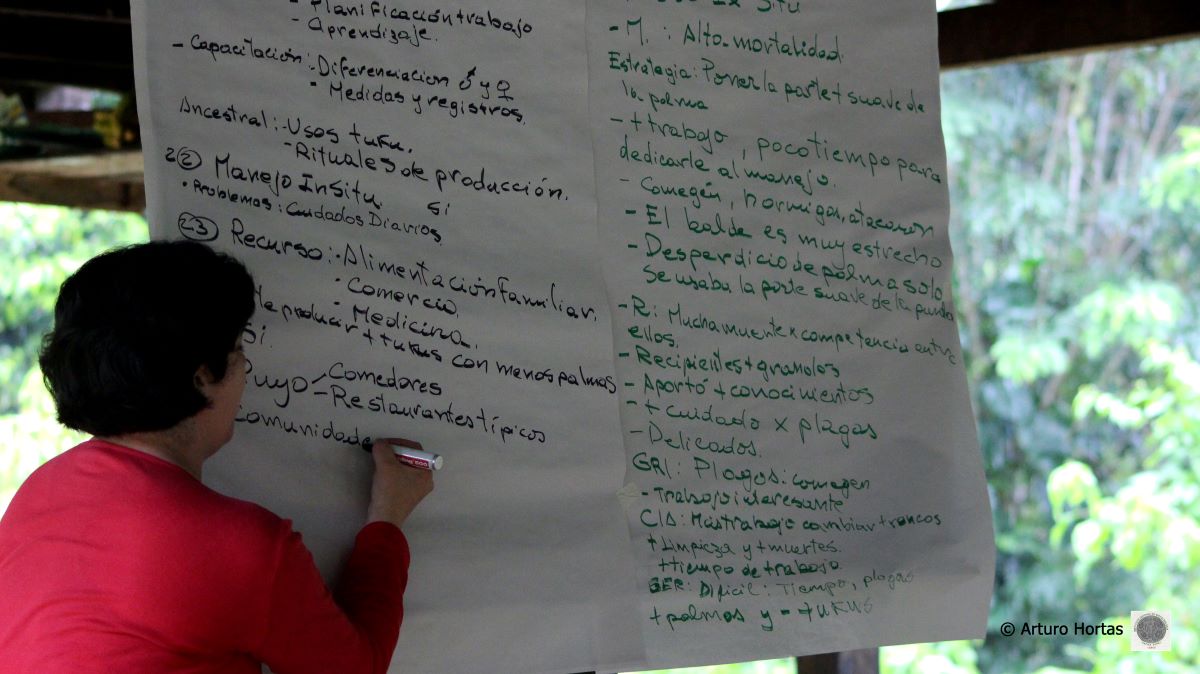 - Planificación + trabajo
- Aprendizaje.
- Capacitación: - Diferenciacion ♂ y ♀
- Medidas y registros.
Ancestral: - Usos tuku.
- Rituales de producción.
2.2 Manejo Insitu. Si
• Problemas: Cuidados Diarios.
2.3 Recurso: • Alimentación familiar.
• Comercio.
- Medicina.
producir + tukus con menos palmas
Si.
Puyo - Comedores
- Restaurantes típicos
Comunidade
Ex Situ
- M. : Alta - mortalidad.
Estrategia: Poner la parte + suave de
la palma
- + trabajo, poco tiempo para
dedicarle al manejo.
- Comegén, hormigas, atacaron
- El balde es muy estrecho
- Desperdicio de palma solo
se usaba la parte suave de la punta
- R: Mucha muerte x competencia entre
ellos.
- Recipientes + grandes
- Aportó + conocimientos
- + cuidado x plagas
- Delicados.
GRI: Plagas: comegen
- Trabajo interesante
CIA: Mas trabajo cambiar troncos
+ Limpieza y + muertes.
+ tiempo de trabajo.
GER: Dificil: Tiempo, plagas
+ palmas y - tukus
© Arturo Hortas